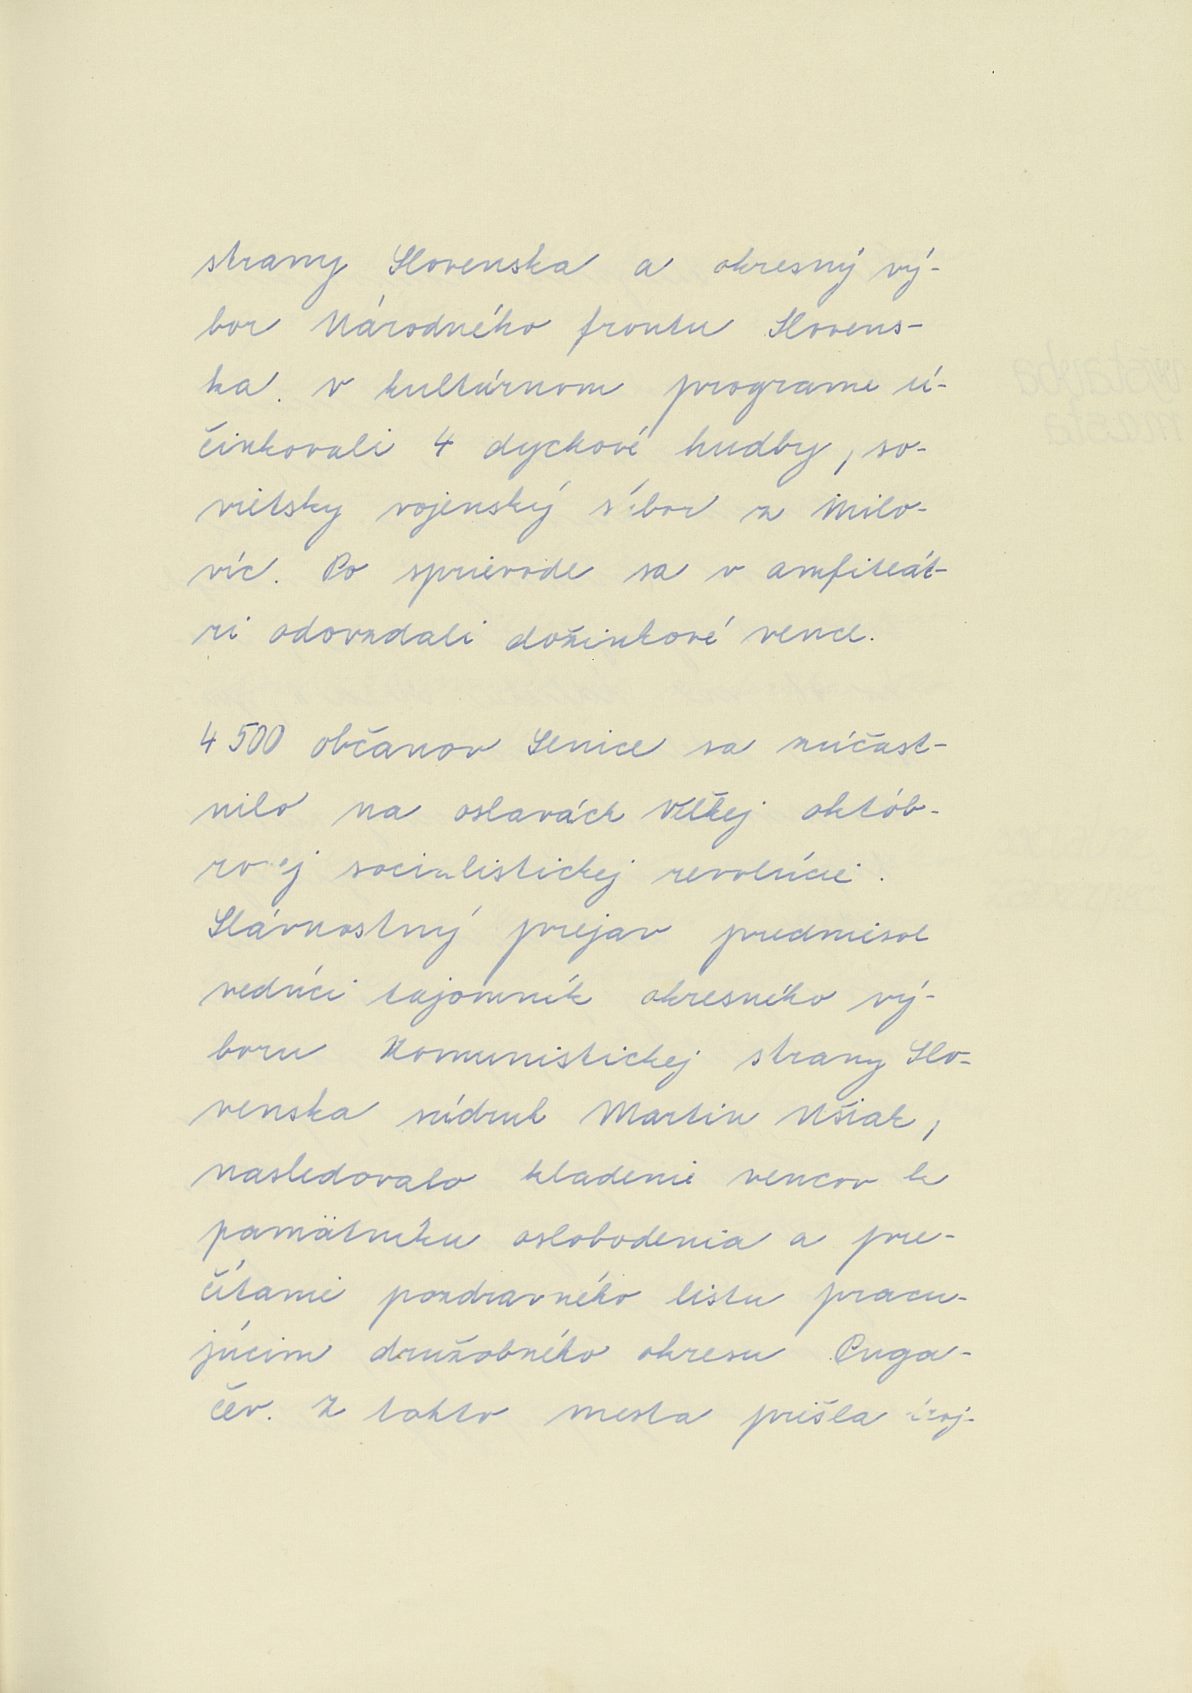 strany Slovenska a okresný vý-
bor Národného frontu Slovens-
ka. V kultúrnom programe ú-
činkovali 4 dychové hudby, so-
vietsky vojenský súbor z Milo-
víc. Po sprievode sa v amfiteát-
ri odovzdali dožinkové vence.
4 500 občanov Senice sa zúčast-
nilo na oslavách Veľkej októb-
rovej socialistickej revolúcie.
Slávnostný prejav predniesol
vedúci tajomník okresného vý-
boru Komunistickej strany Slo-
venska súdruh Martin Ušiak,
nasledovalo kladenie vencov k
pamätníku oslobodenia a pre-
čítanie pozdravného listu pracu-
júcim družobného okresu Puga-
čev. Z tohto mesta prišla